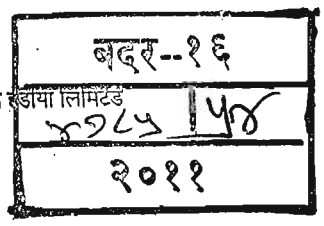 बदर--१६
इंडीया लिमिटेड
४७८५ | ५४
२०११